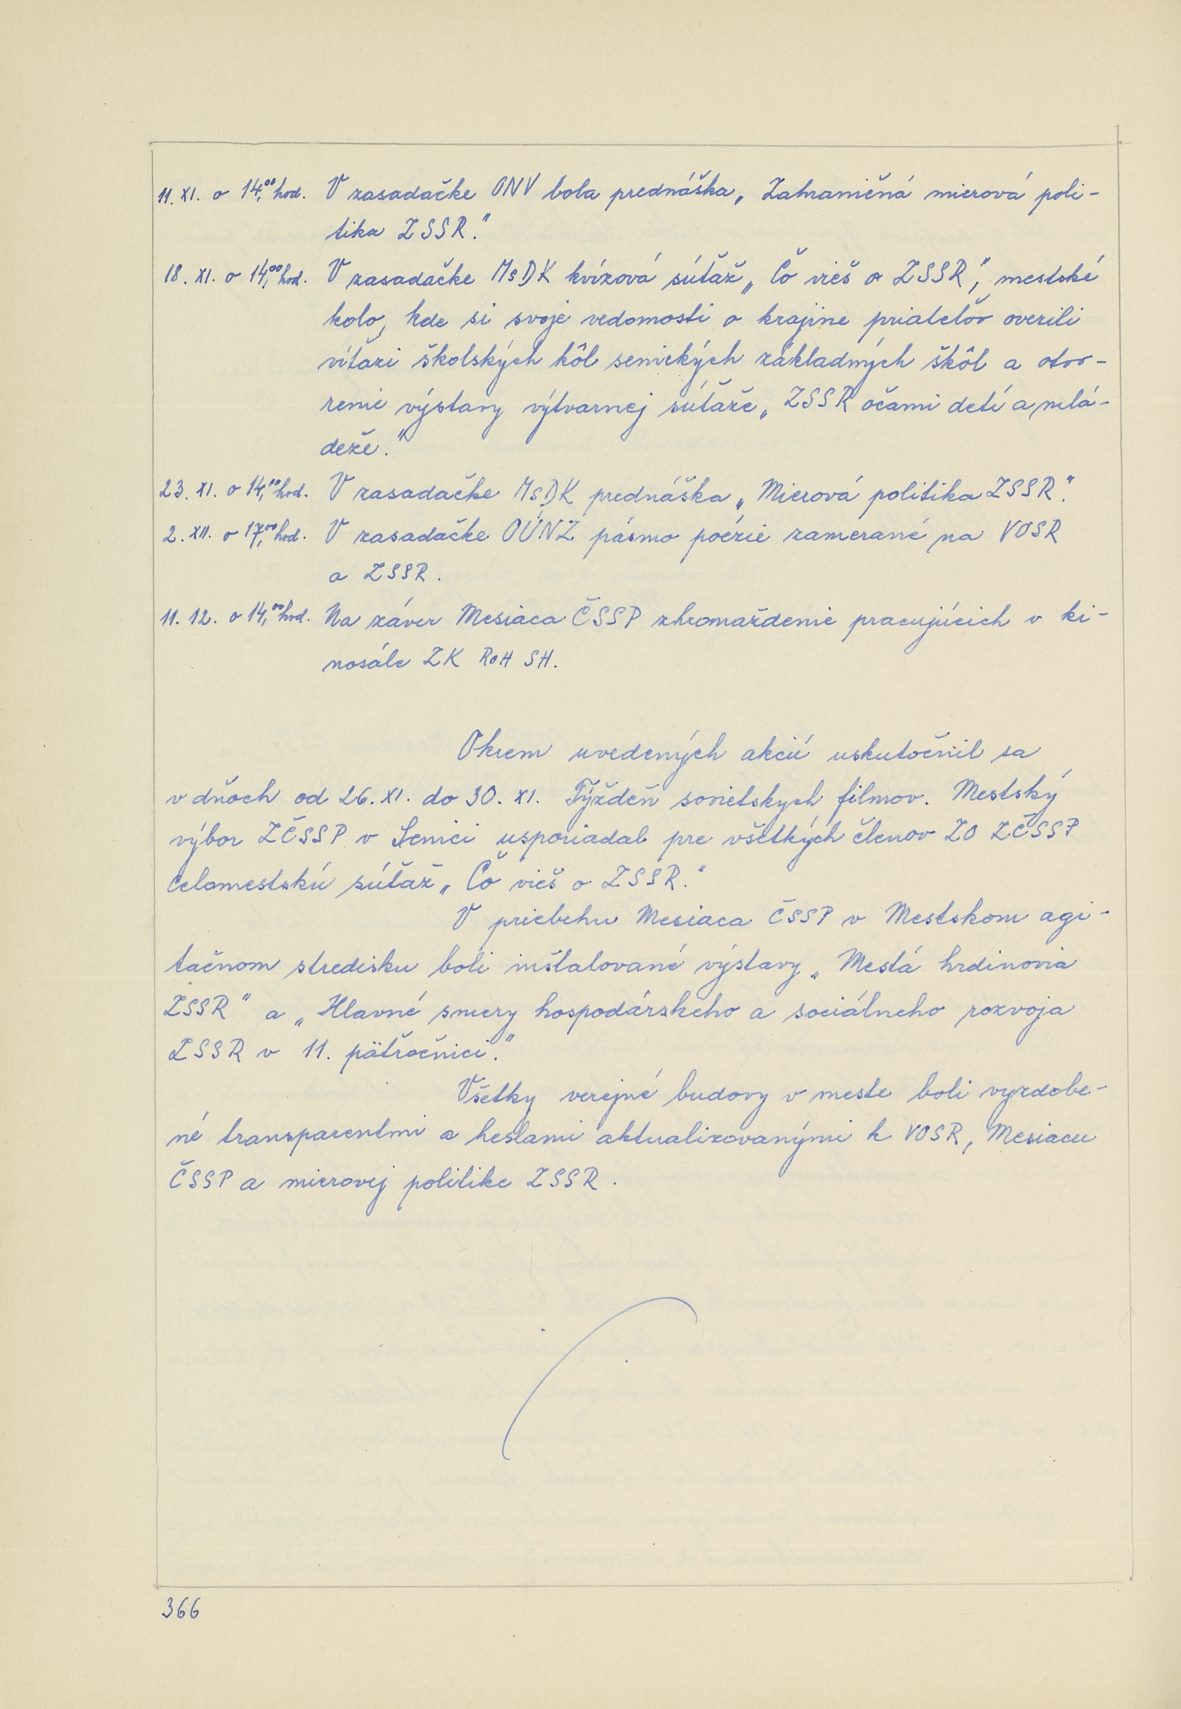 11. XI. o 14,00 hod. V zasadačke ONV bola prednáška „Zahraničná mierová poli-
tika ZSSR."
18. XI. o 14,00 hod. V zasadačke MsDK kvízová súťaž „Čo vieš o ZSSR", mestské
kolo, kde si svoje vedomosti o krajine priateľov overili
víťazi školských kôl senických základných škôl a otvo-
renie výstavy výtvarnej súťaže „ZSSR očami detí a mlá-
deže."
23. XI. o 14,00 hod. V zasadačke MsDK prednáška „Mierová politika ZSSR".
2. XII. o 17,00 hod. V zasadačke OÚNZ pásmo poézie zamerané na VOSR
a ZSSR.
11. 12. o 14,00 hod. Na záver Mesiaca ČSSP zhromaždenie pracujúcich v ki-
nosále ZK ROH SH.
Okrem uvedených akcií uskutočnil sa
v dňoch od 26. XI. do 30. XI. Týždeň sovietskych filmov. Mestský
výbor ZČSSP v Senici usporiadal pre všetkých členov ZO ZČSSP
celomestskú súťaž „Čo vieš o ZSSR."
V priebehu Mesiaca ČSSP v Mestskom agi-
tačnom stredisku boli inštalované výstavy „Mestá hrdinovia
ZSSR" a „Hlavné smery hospodárskeho a sociálneho rozvoja
ZSSR v 11. päťročnici."
Všetky verejné budovy v meste boli vyzdobe-
né transparentmi a heslami aktualizovanými k VOSR, Mesiacu
ČSSP a mierovej politike ZSSR.
366